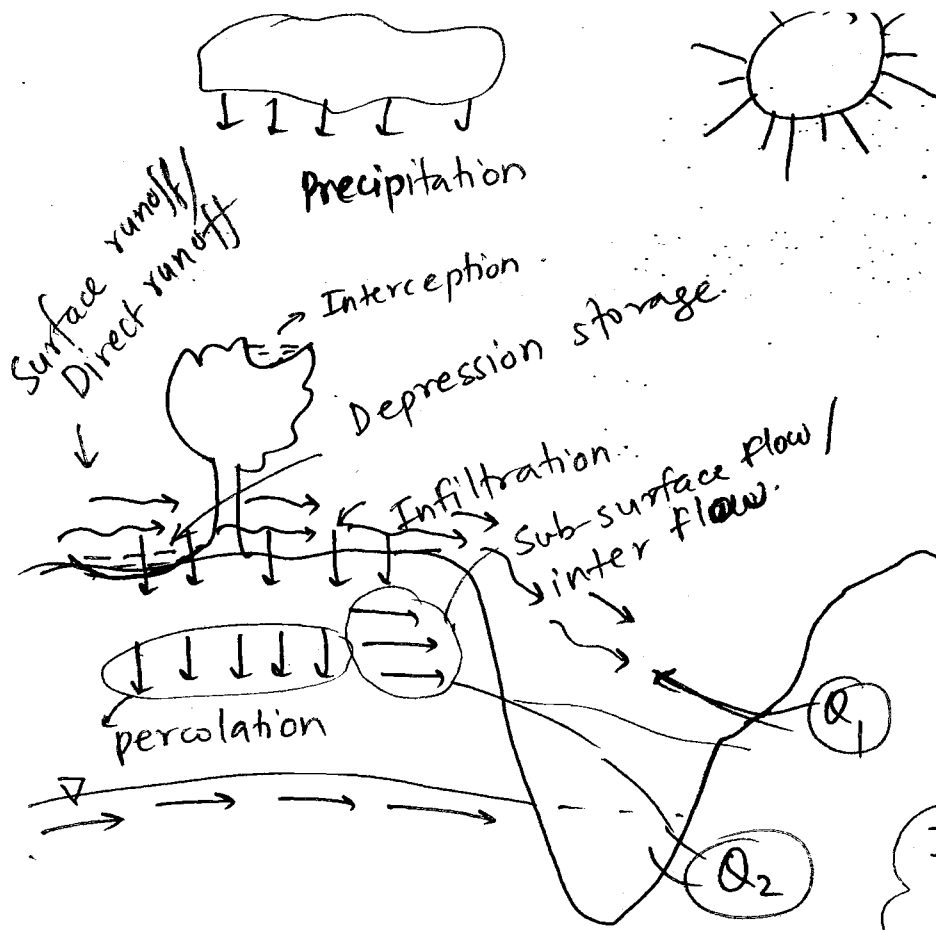 Precipitation
Surface runoff/
Direct runoff
Interception
Depression storage.
Infiltration.
Sub-surface flow/
inter flow.
percolation
Q1
Q2